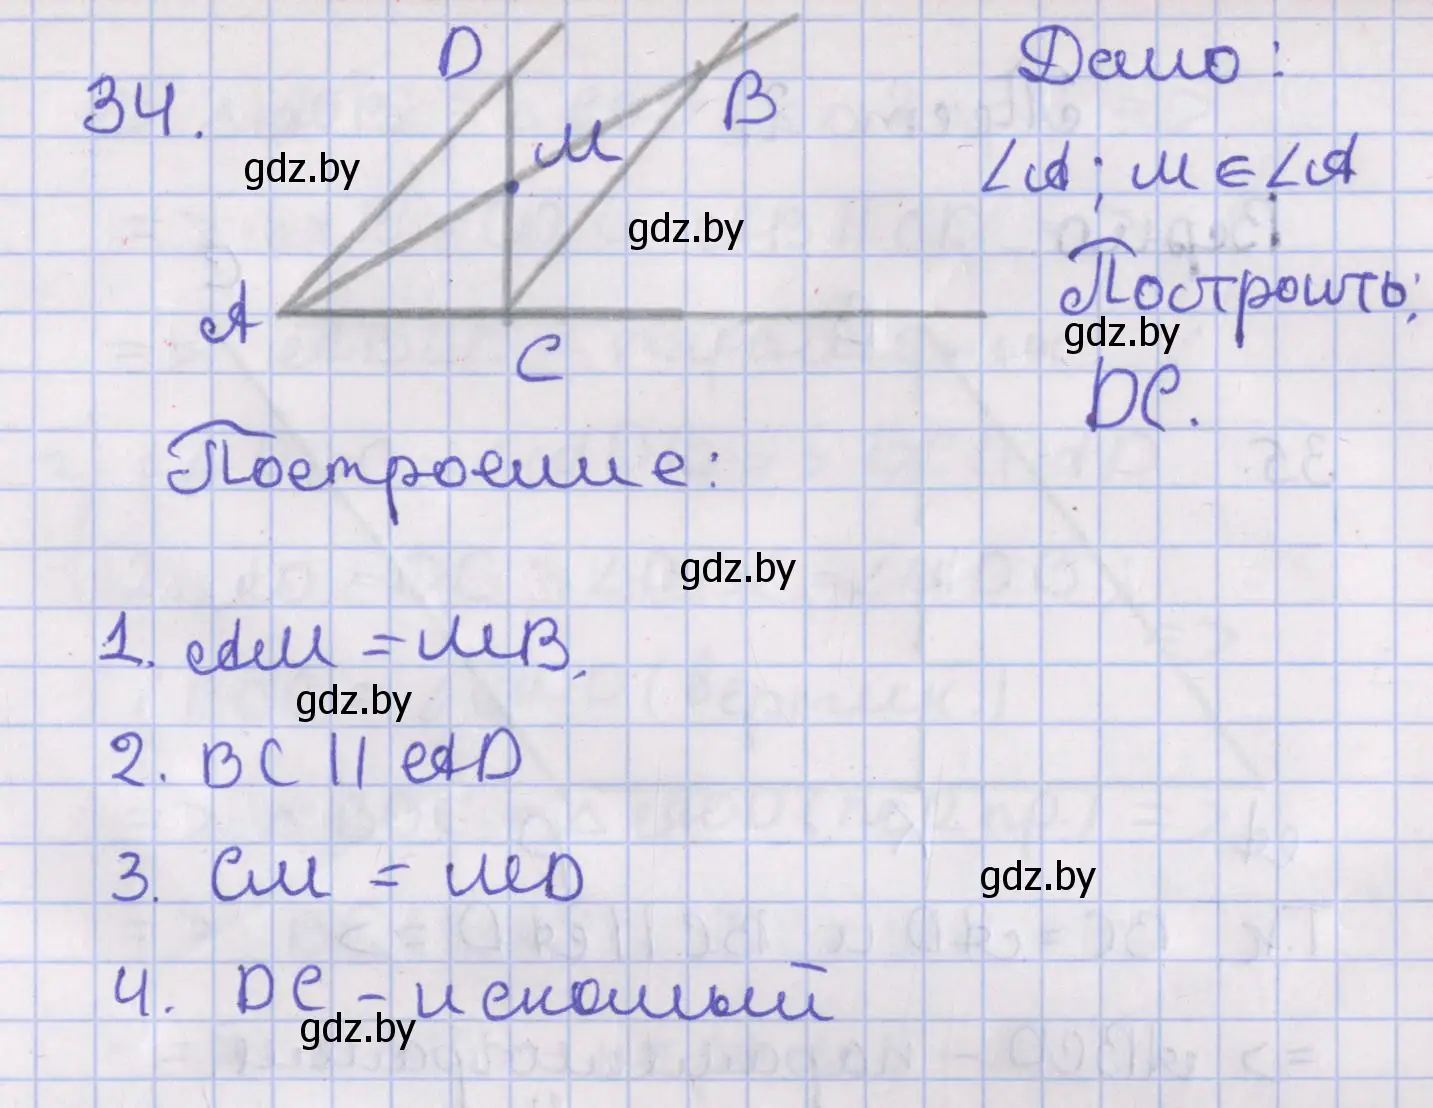 34.
D
M
B
A
C
Дано:
∠A; M ∈ ∠A
Построить:
DC.
Построение:
1. AM = MB.
2. BC || AD
3. CM = MD
4. DC - искомый
gdz.by
gdz.by
gdz.by
gdz.by
gdz.by
gdz.by
gdz.by